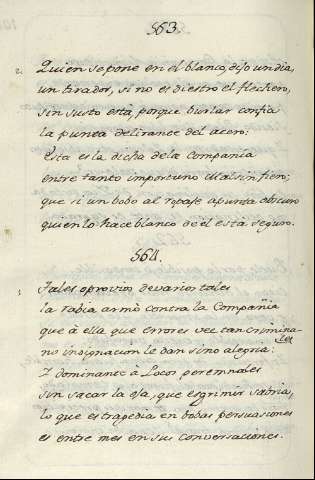 563.
2. Quien se pone en el blanco, dijo un dia,
un tirador, si no es diestro el flechero,
sin susto està, porque burlar confia
la punta delirante del acero:
Esta es la dicha de la Compañia
entre tanto importuno Malsin fiero;
que si un bobo al ropaje apunta obscuro
quien lo hace blanco de èl està seguro.
564.
3. Tales oprovios de varios tales
la rabia armò contra la Compañia
que à ella que errores vee tan crimina-
les
no indignacion le dan sino alegria:
I dominante à Locos peremnales
sin sacar la osa, que esgrimir sabria,
lo que es tragedia en bobas persuasiones
es entre mes en sus conversaciones.